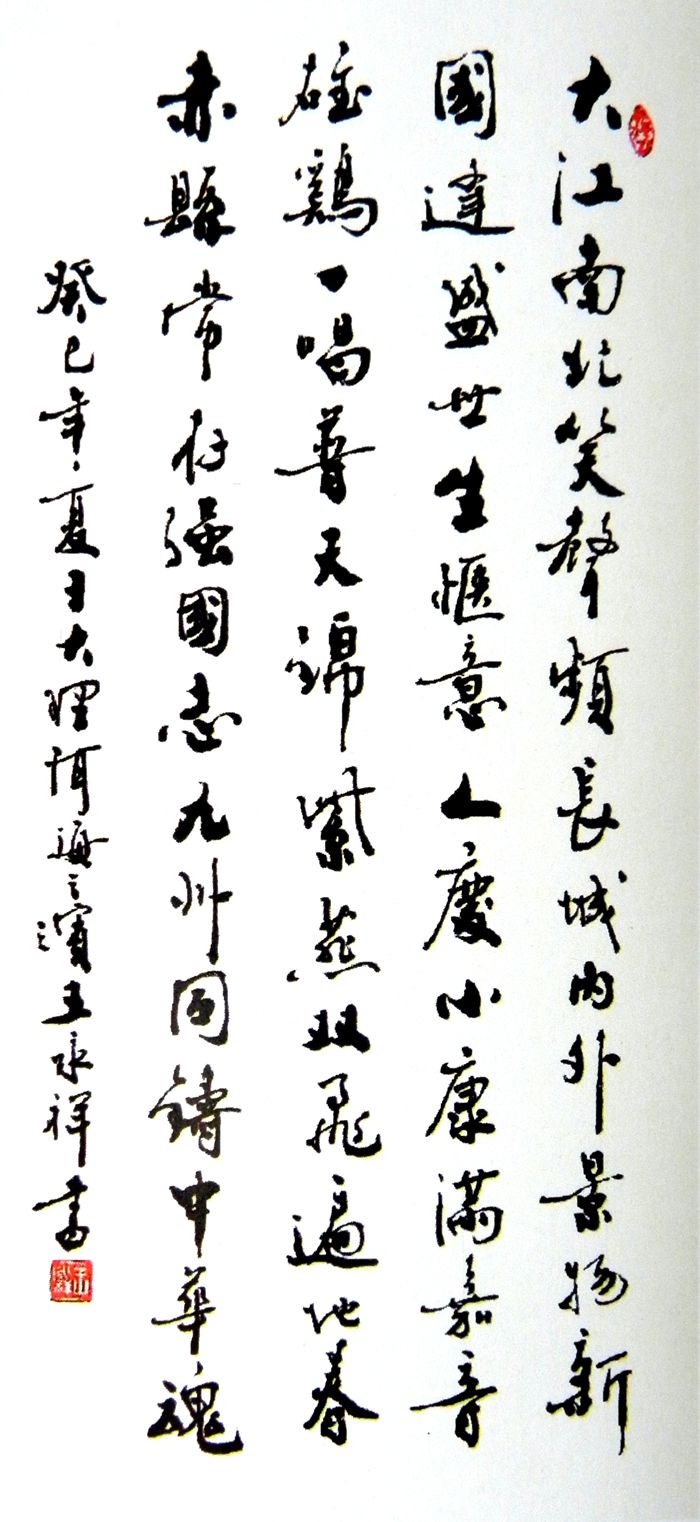 大江南北笑聲頻長城内外景物新
國逢盛世生愜意人慶小康滿嘉音
雄鷄一唱普天錦紫燕双飛遍地春
赤縣常存强國志九州同鑄中華魂
癸巳年夏日大理洱海之濱王永祥書